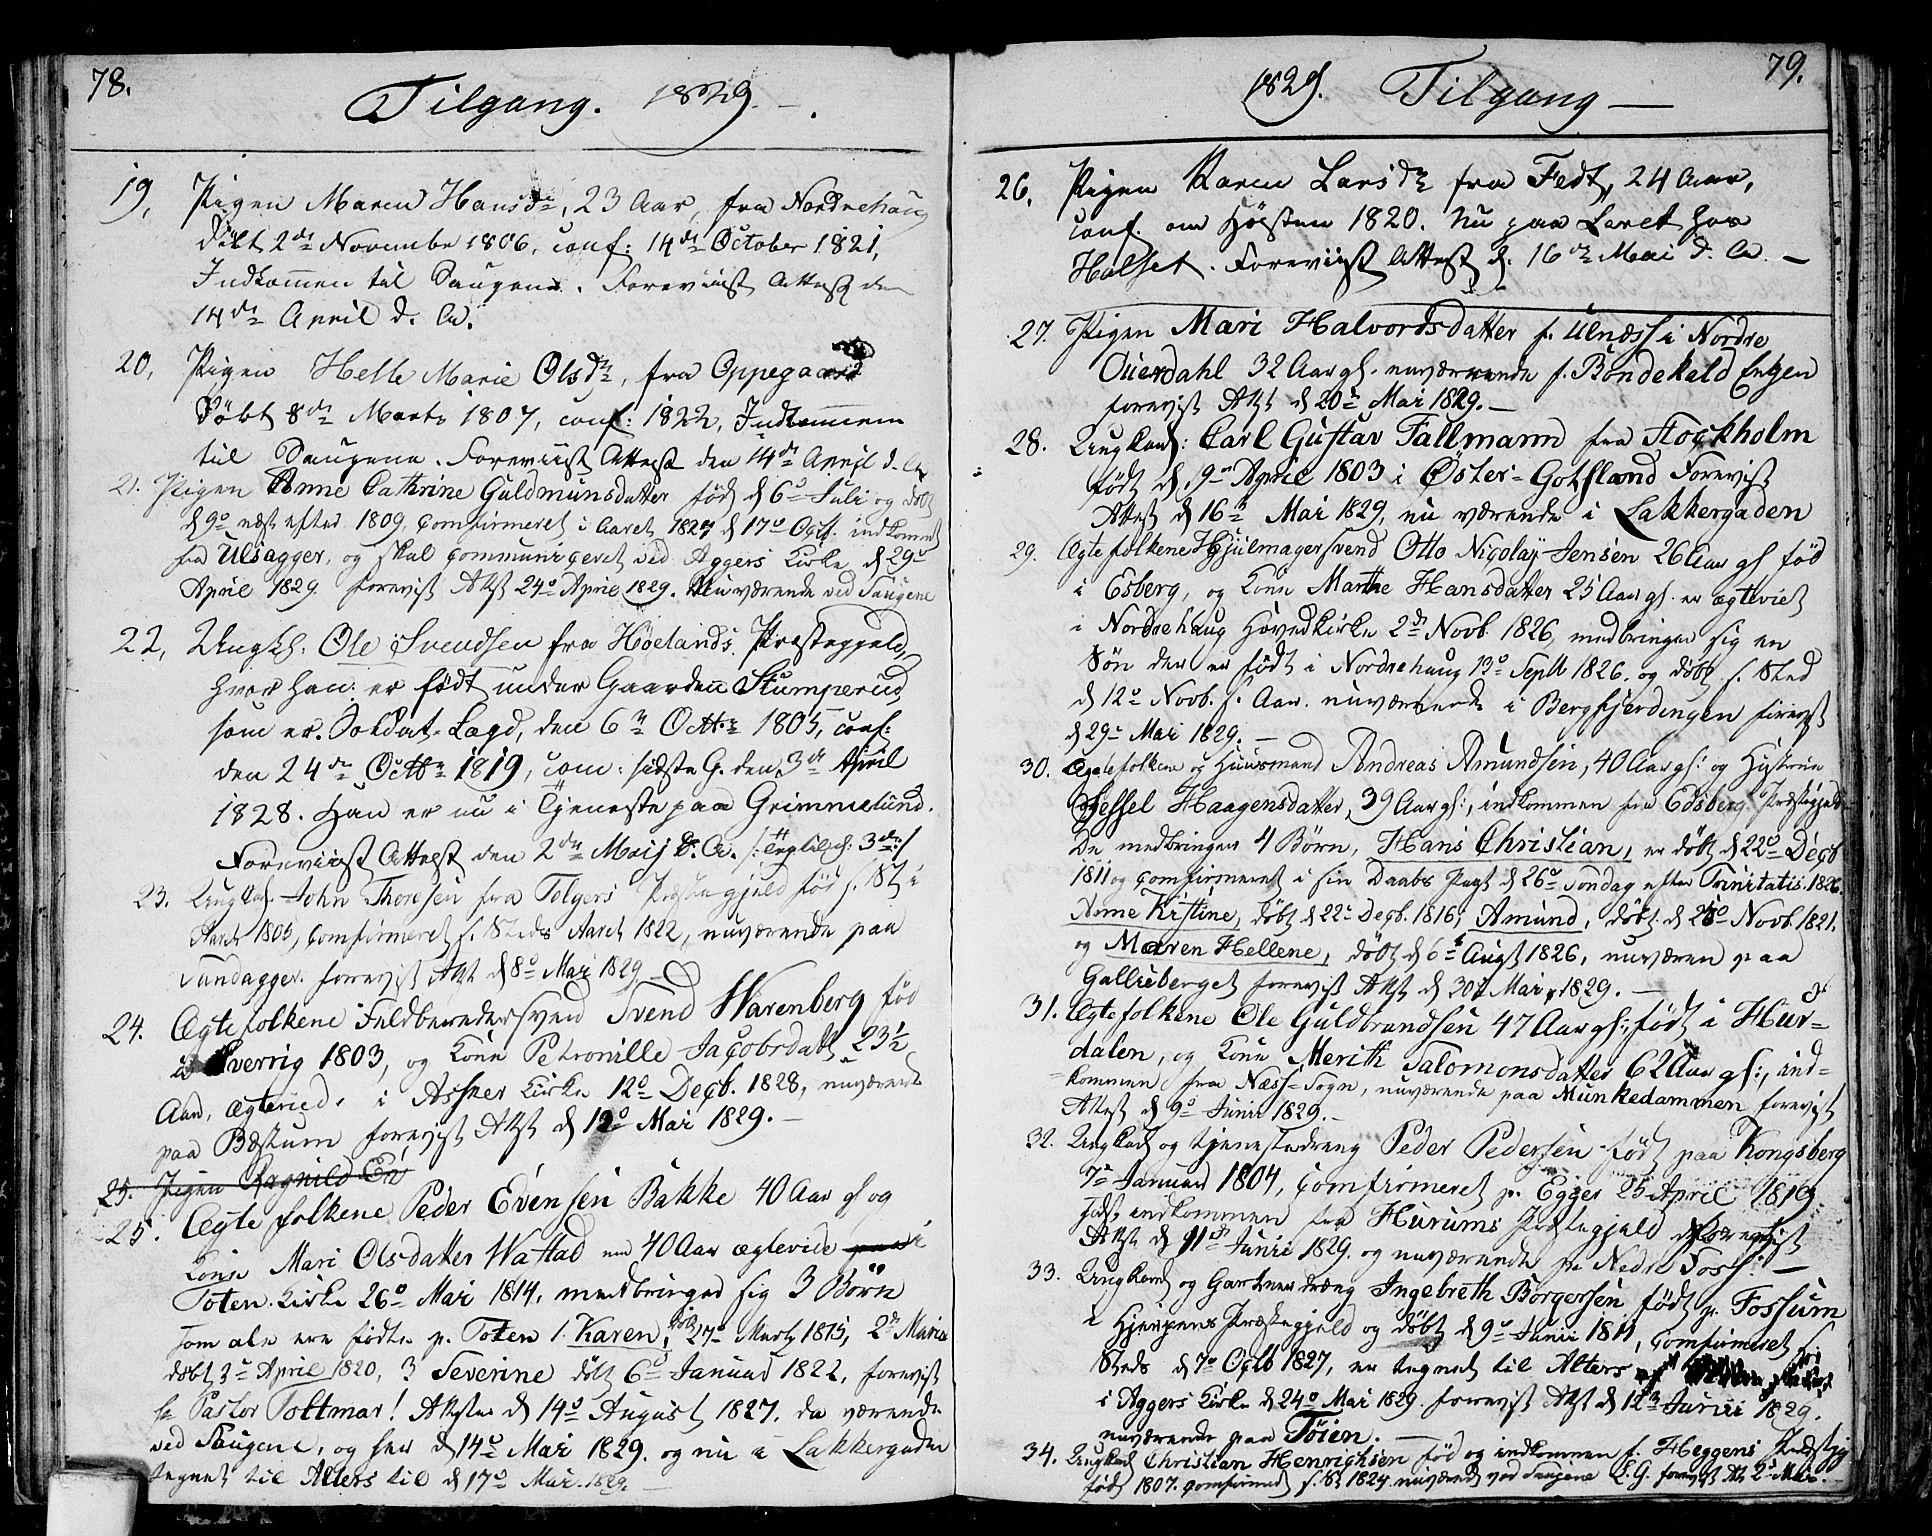 78.
Tilgang. 1829.
19, Pigen Maren Hansdr, 23 Aar, fra Nordrehaug
døbt 2de Novembr 1806, conf: 14de October 1821,
Indkommen til Saugene. Foreviist Attest den
14de April d. A.
20, Pigen Helle Marie Olsdr, fra Oppegaard
Døbt 8de Marts 1807, conf: 1822, Indkommen
til Saugene. Foreviist Attest den 14de April d. A.
21. Pigen Anne Cathrine Guldmunsdatter fød d 6o Juli og døbt
d 9o næst efter 1809, Comfirmeret i Aaret 1827 d 17o Octb. indkommet
fra Ulsagger, og skal Communiceret ved Aggers Kirke d 29o
April 1829 forevist Atst 24o April 1829. Nuværende ved Saugene
22, Ungk: Ole Svendsen fra Høelands Præstegjeld,
hvor han er født under Gaarden Stumperud,
som er Soldat-Lægd, den 6te Octbr 1805, conf:
den 24de Octbr 1819, com: sidste G. den 3de April
1828. Han er nu i Tjeneste paa Grimmelund.
Foreviist Attest den 2den Maij d. A.
23. Ungkarl John Thoresen fra Tolgers Præstegjeld fød s. St i
Aaret 1805, Comfirmeret s. Steds Aaret 1822, nuværende paa
Sandagger. forevist Atst d 8o Mai 1829.
24. Ægtefolkene Feldberedersvend Svend Warenberg fød
i Sverrig 1803, og Kone Petronille Jacobsdatt. 23½
Aar, ægteviede i Assker Kirke 12o Decb. 1828, nuværende
paa Bestum forevist Atst d 12o Mai 1829.
25. Pigen Ragnild En
25. Ægtefolkene Peder Evensen Bakke 40 Aar gl og
Kone Mari Olsdatter Wastad 40 Aar ægteviede paa i
Toten Kirke 26o Mai 1814, medbringer sig 3 Børn
som ale ere fødte p. Toten 1. Karen, døbt 27o Marts 1815, 2de Marie
døbt 3o April 1820, 3 Severine døbt 6o Januar 1822, forevist
fr Pastor Toltmar! Attester d 14o August 1827, da værende
ved Saugene, og her d 14o Mai 1829. og nu i Lakkergaden
tegnet til Alters til d 17o Mai 1829.
79.
1829. Tilgang
26. Pigen Karen Larsdr fra Fedt, 24 Aar,
conf. om Høsten 1820. Nu paa Løret hos
Halset. Foreviist Attest d. 16de Mai d. A.
27. Pigen Mari Halvordsdatter f. Ulnæss i Nordre
Ouerdahl 32 Aar gl. nuværende f. Bøndekald Engen
forevist Atst d 20o Mai 1829.
28. Ungkarl: Carl Gustav Tallmann fra Stockholm
født d. 9o April 1803 i Øster-Gotsland Forevist
Attest d 16o Mai 1829, nu værende i Lakkergaden
29. Ægtefolkene Hjulmagersvend Otto Nicolaÿ Jensen 26 Aar gl fød
i Esberg, og Kone Marthe Hansdatter 25 Aar gl. er ægteviet
i Nordrehaug Hovedkirke 2de Novb. 1826, medbringer sig en
Søn der er født i Nordrehaug 13o Septb 1826. og døbt s. Sted
d 12o Novb. s. Aar. nuværende i Bergfjerdingen forevist
d 29o Mai 1829.
30. Ægtefolkene og Huusmand Andreas Amundsen, 40 Aar gl: og Hustrue
Sessel Haagensdatter, 39 Aar gl:, indkommen fra Edsberg Præstegjeld
De medbringer 4 Børn, Hans Christian, er døbt d 22o Decb
1811 og Comfirmeret i sin Daabs Pagt d 26o Søndag efter Trinitatis 1826.
Anne Kistine, døbt d 22o Decb. 1816, Amund, døbt d 25o Novb. 1821.
og Maren Hellene, døbt d 6te Augt 1826, nuværen paa
Gallieberget forevist Atst d 30te Mai 1829.
31. Ægtefolkene Ole Guldbrandsen 47 Aar gl:, født i Hur-
dalen, og Kone Merith Salomonsdatter 62 Aar gl:, ind-
kommen fra Næss-Sogn, nuværende paa Munkedammen forevist
Attest d 9o Junii 1829.
32. Ungkarl og tjenestedreng Peder Pedersen født paa Kongsberg
7o Januar 1804, Comfirmeret p. Egger 25 April 1819.
indkommen fra Hurums Præstegjeld forevist
Attst d 11te Junii 1829. og nuværende p. Nedre Foss.
33. Ungkarl og Gartnerdræng Ingebreth Borgersen født p. Fossum
i Hjerpens Præstegjeld og døbt d 9o Junii 1811, Comfirmeret s
Steds d 7o Octb 1827, er tegnet til Alters
i Aggers Kirke d 24o Mai 1829. forevist Atst d 12te Junii 1829.
nuværende paa Tøien.
34. Ungkarl Christian Henrichsen fød og indkommen f. Heggens Præstegj
fød 1807. Comfirmed s. St 1824 nuværende ved Saugene L. G. forevist At 2o Mai.